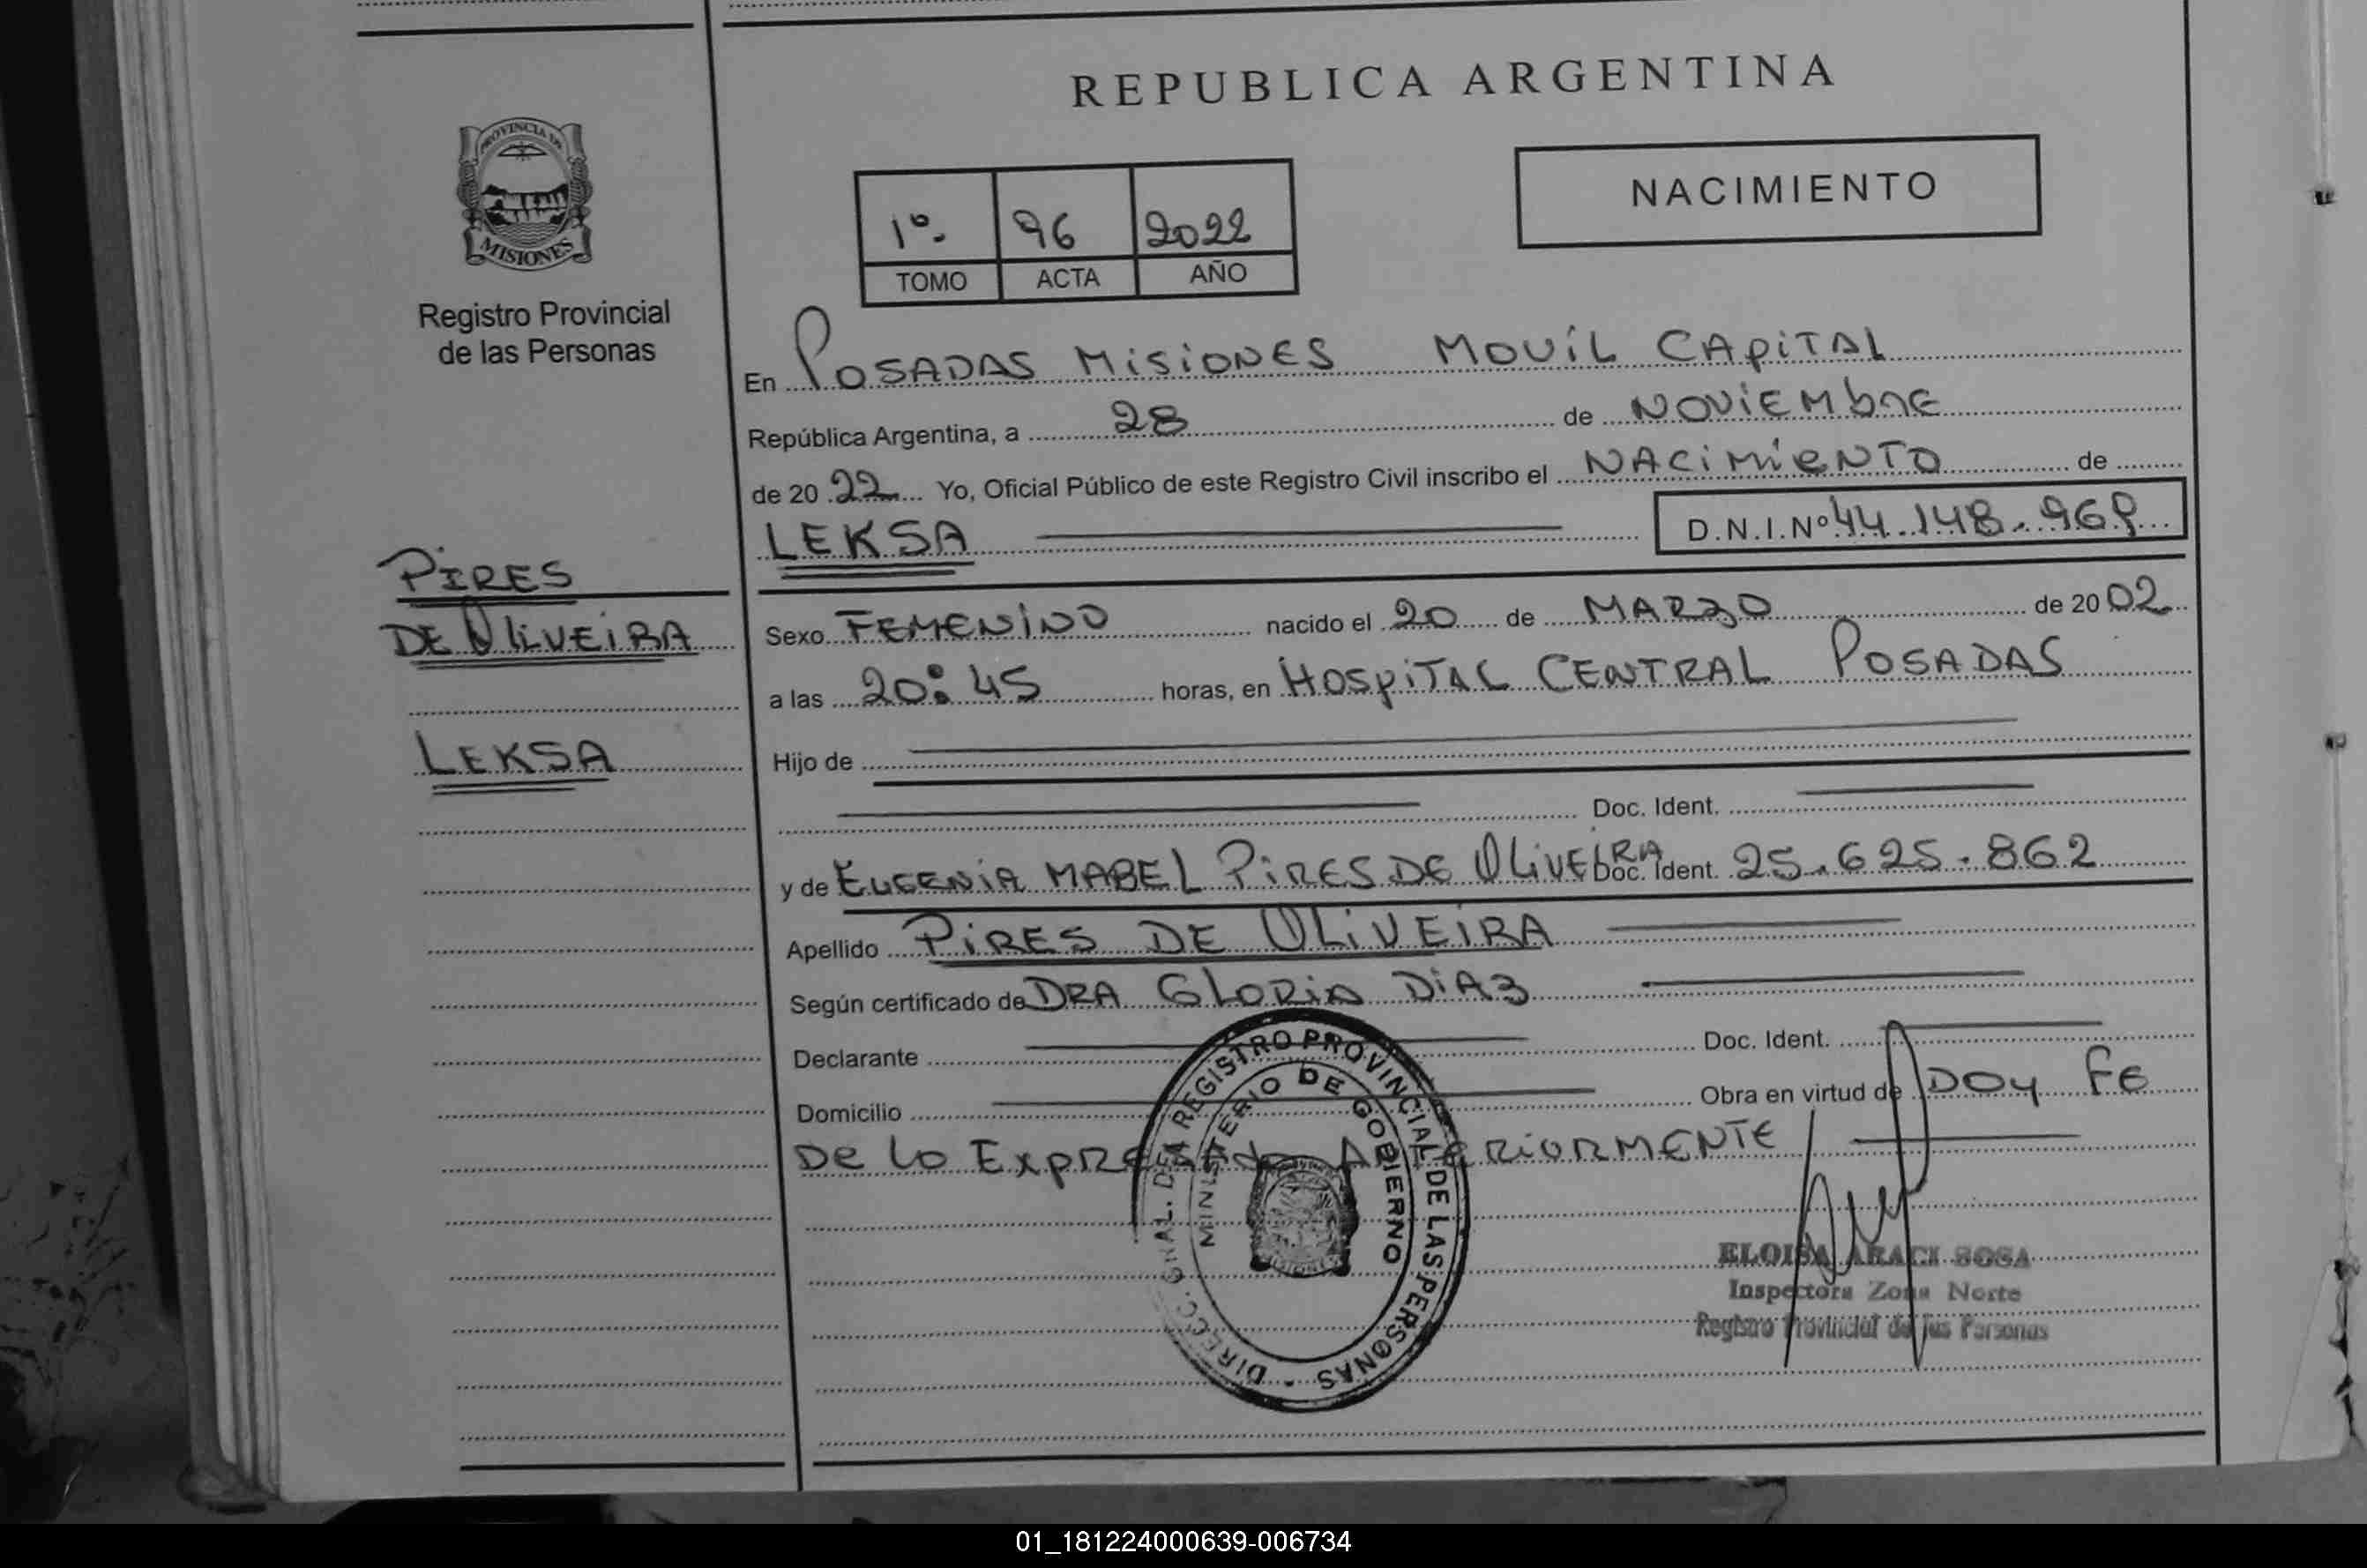 REPUBLICA ARGENTINA
PROVINCIA DE
MISIONES
Registro Provincial
de las Personas
NACIMIENTO
1º- 96 2022
TOMO ACTA AÑO
En POSADAS MISIONES MOVIL CAPITAL
República Argentina, a 28 de NOVIEMbRE
de 20 22 Yo, Oficial Público de este Registro Civil inscribo el NACIMIENTO de
LEKSA D.N.I.Nº 44.148.969
PIRES
DE OLIVEIRA
LEKSA
Sexo FEMENINO nacido el 20 de MARZO de 20 02
a las 20:45 horas, en HOSPITAL CENTRAL POSADAS
Hijo de
Doc. Ident.
y de EUGENIA MABEL PIRES DE OLIVEIRA Doc. Ident. 25.625.862
Apellido PIRES DE OLIVEIRA
Según certificado de DRA GLORIA DIAZ
Declarante Doc. Ident.
Domicilio Obra en virtud de DOY FE
DE LO EXPRESADO ANTERIORMENTE
DIRECC. GRAL. DEL REGISTRO PROVINCIAL DE LAS PERSONAS -
MINISTERIO DE GOBIERNO
MISIONES
ELOISA ARACI SOSA
Inspectora Zona Norte
Registro Provincial de las Personas
01_181224000639-006734